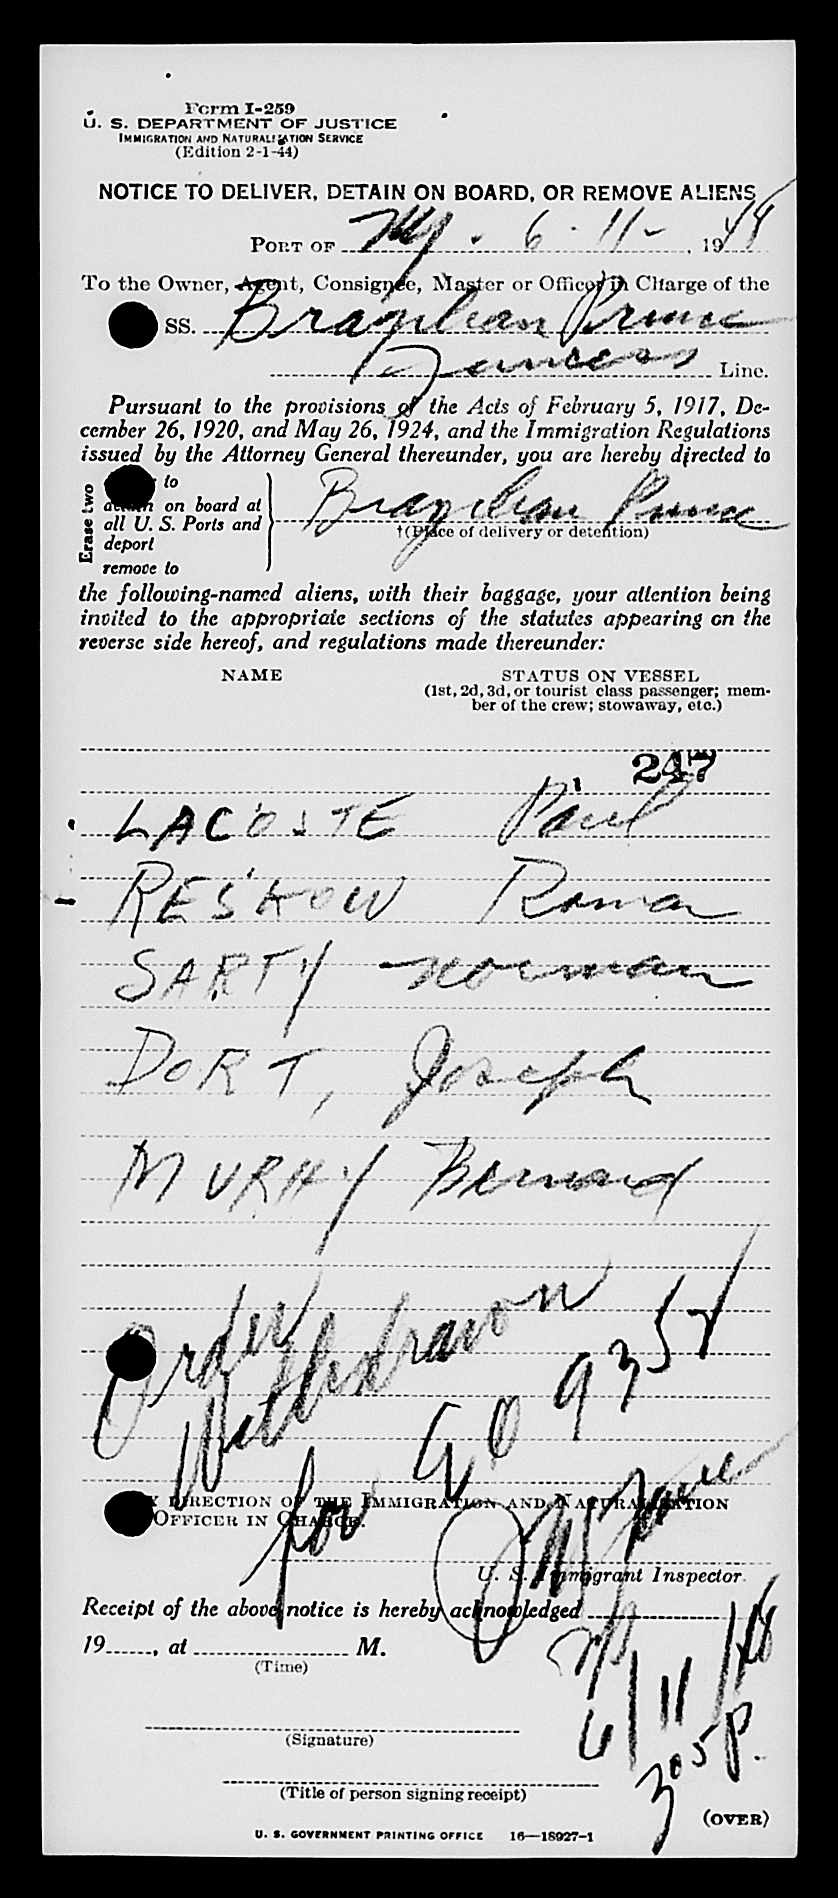 Form I-259
U. S. DEPARTMENT OF JUSTICE
IMMIGRATION AND NATURALIZATION SERVICE
(Edition 2-1-44)
NOTICE TO DELIVER, DETAIN ON BOARD, OR REMOVE ALIENS
PORT OF NY. 6-11-, 1948
To the Owner, Agent, Consignee, Master or Officer in Charge of the
SS. Brazilian Prince
Line.
Pursuant to the provisions of the Acts of February 5, 1917, De-
cember 26, 1920, and May 26, 1924, and the Immigration Regulations
issued by the Attorney General thereunder, you are hereby directed to
Erase two
to
on board at
all U. S. Ports and
deport
remove to
Brazilian Prince
†(Place of delivery or detention)
the following-named aliens, with their baggage, your attention being
invited to the appropriate sections of the statutes appearing on the
reverse side hereof, and regulations made thereunder:
NAME STATUS ON VESSEL
(1st, 2d, 3d, or tourist class passenger; mem-
ber of the crew; stowaway, etc.)
247
LACOSTE Paul
RESKOW Roman
SARTY Norman
DORT, Joseph
MURHY Bernard
Order
Withdrawn
for GO 9352
BY DIRECTION OF THE IMMIGRATION AND NATURALIZATION
OFFICER IN CHARGE.
U. S. Immigrant Inspector.
Receipt of the above notice is hereby acknowledged
19......, at M.
(Time)
6/11/48
305 P.
(Signature)
(Title of person signing receipt)
(OVER)
U. S. GOVERNMENT PRINTING OFFICE 16—18927-1